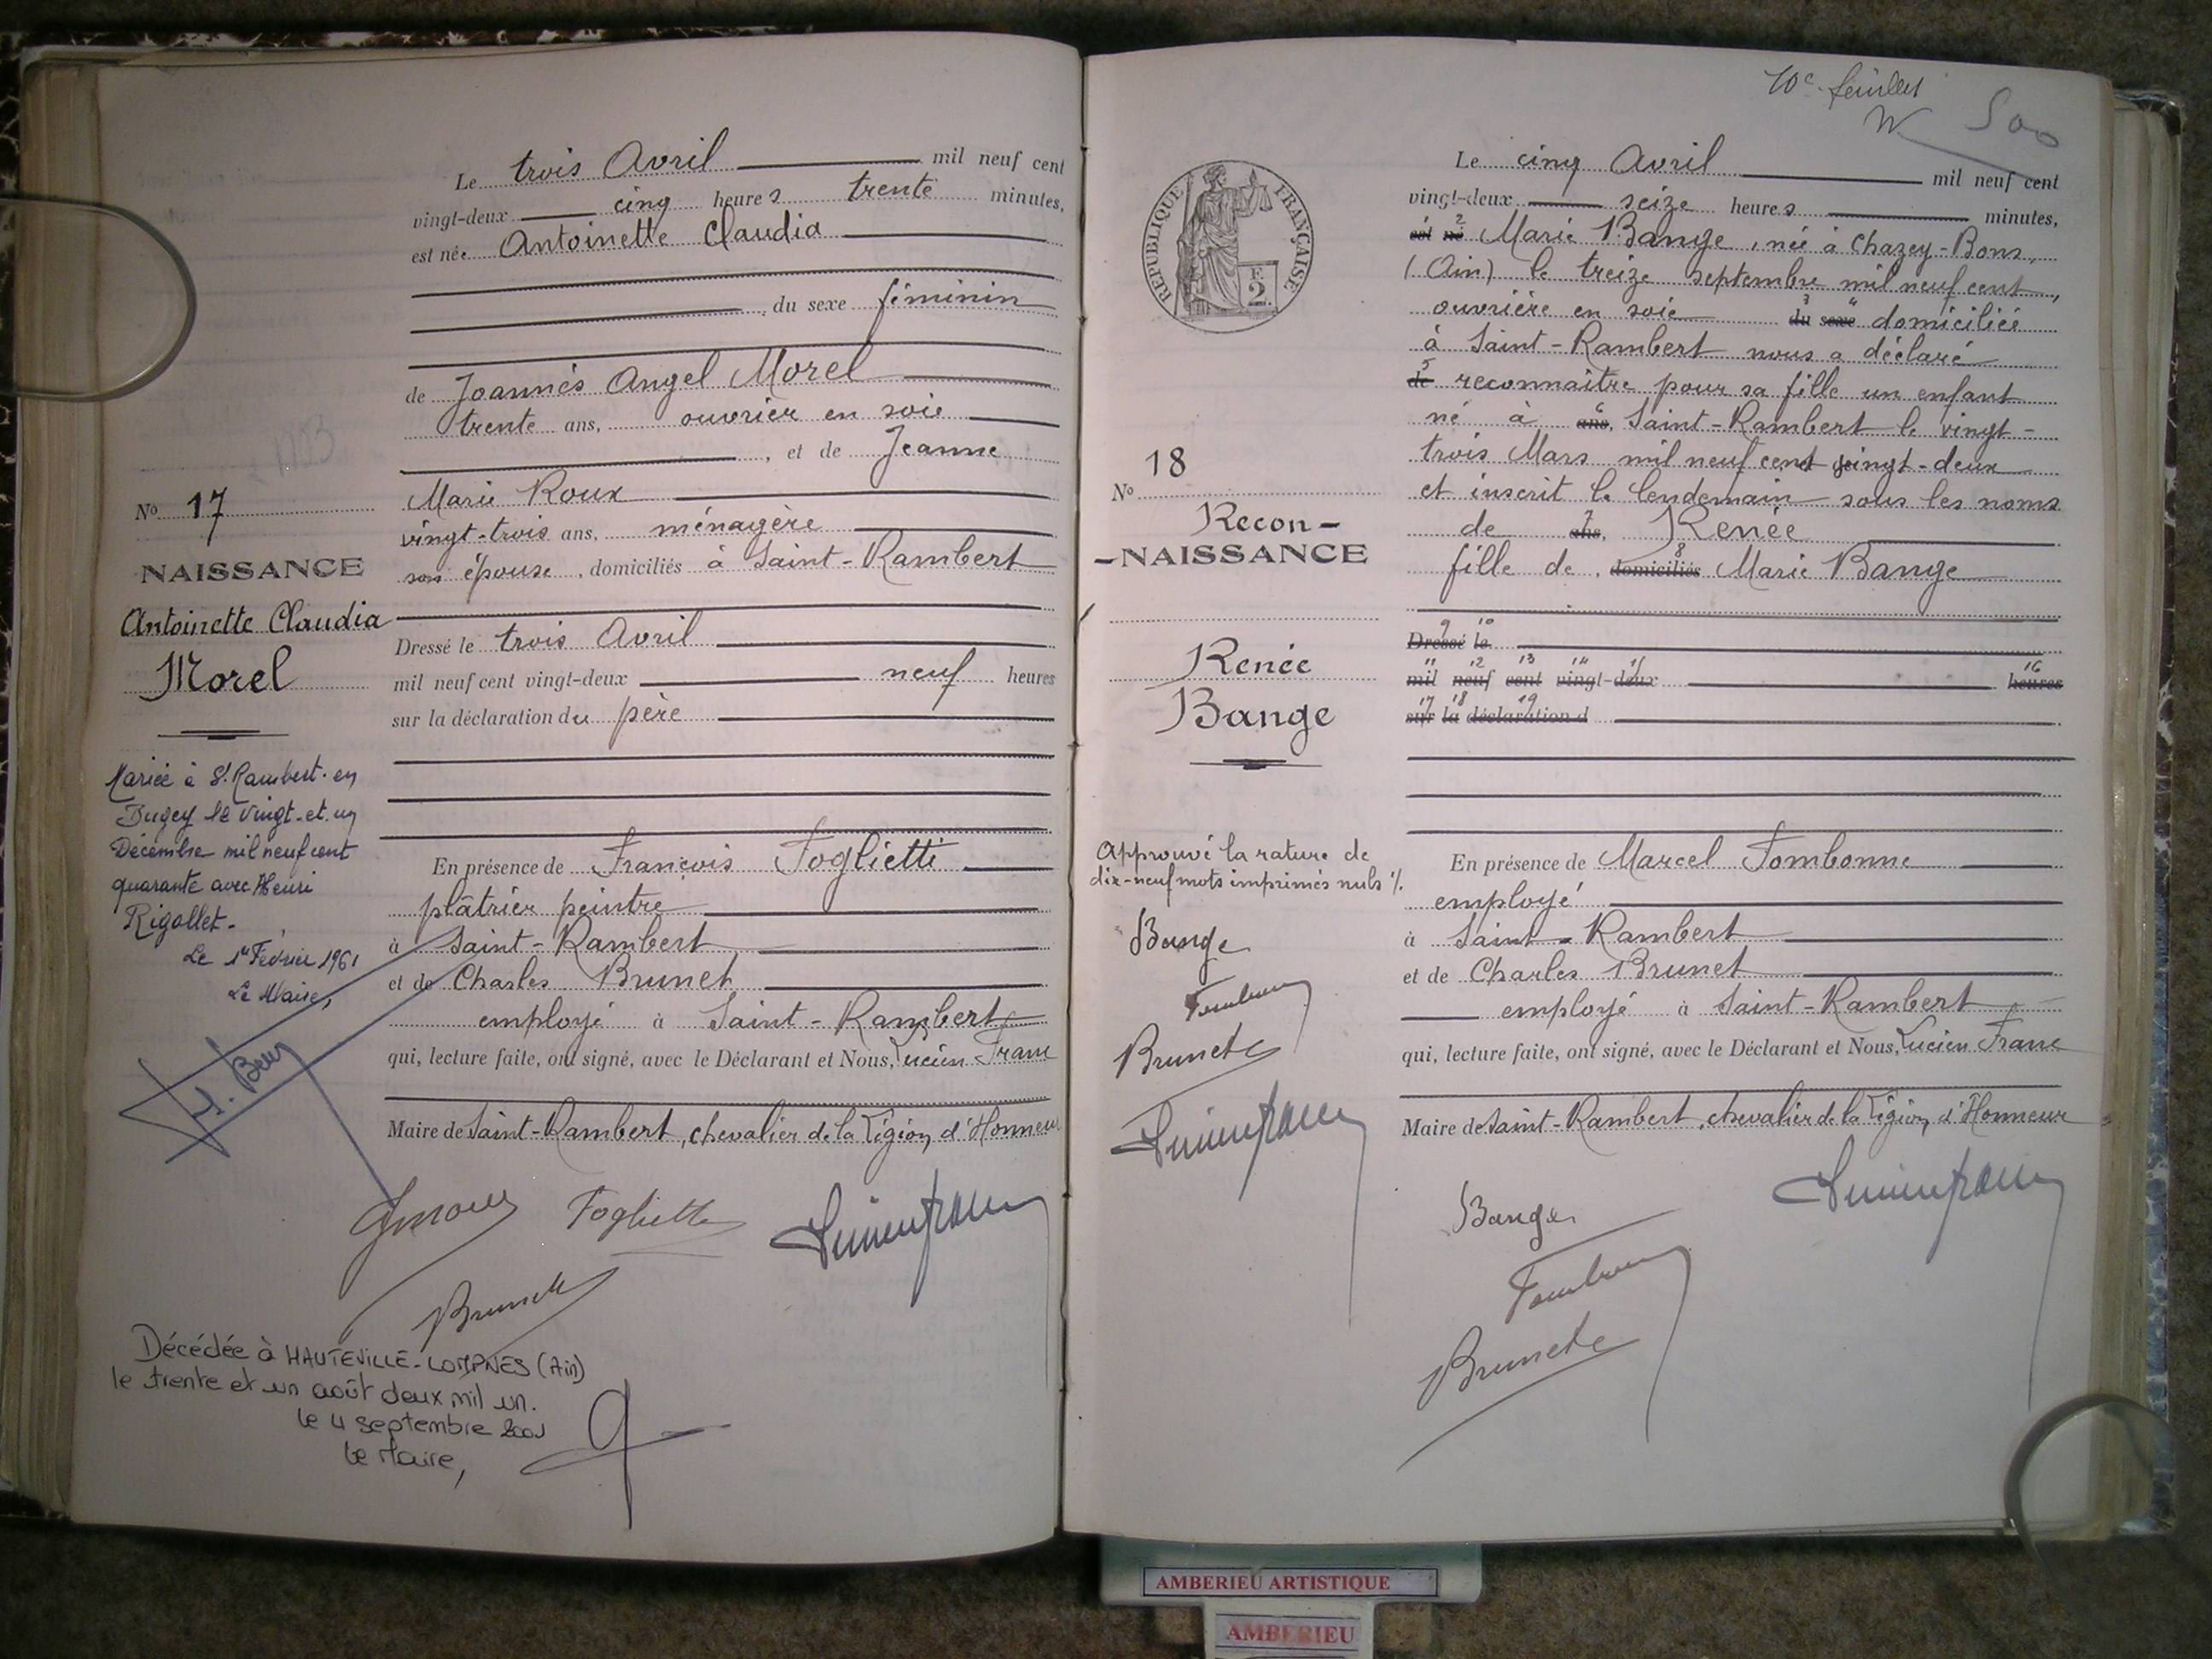 Le trois Avril mil neuf cent
vingt-deux cinq heures trente minutes,
est née Antoinette Claudia
du sexe féminin
de Joannès Angel Morel
trente ans, ouvrier en soie
, et de Jeanne
Marie Roux
vingt-trois ans, ménagère
son épouse, domiciliés à Saint-Rambert
Dressé le trois Avril
mil neuf cent vingt-deux neuf heures
sur la déclaration du père
En présence de François Foglietti
plâtrier peintre
à Saint-Rambert
et de Charles Brunet
employé à Saint-Rambert
qui, lecture faite, ont signé, avec le Déclarant et Nous, Lucien Franc
Maire de Saint-Rambert, chevalier de la Légion d'Honneur
Foglietti
Brunet
No 17
NAISSANCE
Antoinette Claudia
Morel
Mariée à St Rambert-en
Bugey le vingt-et-un
Décembre mil neuf cent
quarante avec Henri
Rigollet-
Le 1er Février 1961
Le Maire,
Décédée à HAUTEVILLE-LOMPNES (Ain)
le trente et un août deux mil un.
le 4 septembre 2001
Le Maire,
10e feuillet
500
RÉPUBLIQUE FRANÇAISE
F.
2.
No 18
Recon-
-NAISSANCE
Renée
Bange
Approuvé la rature de
dix-neuf mots imprimés nuls %.
Bange
Brunet
Le cinq Avril mil neuf cent
vingt-deux seize heures minutes,
est né 2 Marie Bange, née à Chazey-Bons,
(Ain) le treize septembre mil neuf cent,
ouvrière en soie du 3 sexe 4 domiciliée
à Saint-Rambert nous a déclaré
de 5 reconnaître pour sa fille un enfant
né à ans, 6 Saint-Rambert le vingt-
trois Mars mil neuf cent vingt-deux
et inscrit le lendemain sous les noms
de ans, 7 Renée
fille de , domiciliés 8 Marie Bange
Dressé 9 le 10
mil 11 neuf 12 cent 13 vingt 14-deux 15 heures 16
sur 17 la 18 déclaration d 19
En présence de Marcel Tombonne
employé
à Saint-Rambert
et de Charles Brunet
employé à Saint-Rambert
qui, lecture faite, ont signé, avec le Déclarant et Nous, Lucien Franc
Maire de Saint-Rambert, chevalier de la Légion d'Honneur
Bange
Brunet
AMBERIEU ARTISTIQUE
AMBERIEU